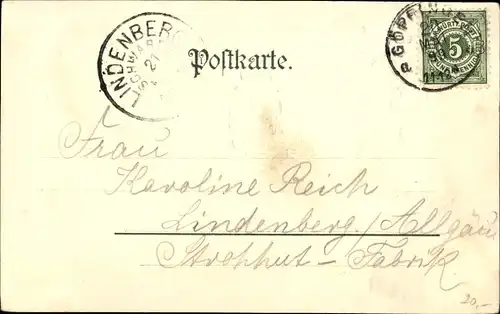 LINDENBERG
SCHWAB
27
Postkarte.
GÖPPINGEN
5
Frau
Karoline Reich
Lindenberg / Allgäu
Strohhut - Fabrik
20,-